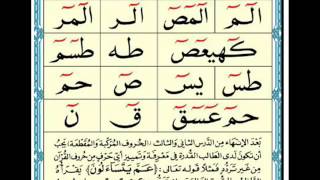 الٓمٓ الٓمٓصٓ الٓر الٓمٓر
كٓهيعٓصٓ طه طسٓمٓ
طسٓ يسٓ صٓ حمٓ
حمٓ عٓسٓقٓ قٓ نٓ
بَعْدَ الإِنْتِهَاءِ مِنَ الدَّرْسِ الثَّانِي وَالثَّالِث (الحُرُوف المُرَكَّبَة وَالمُقَطَّعَة) يَجِبُ
أَن تَكُونَ لَدَى الطَّالِبِ القُدْرَة فِي مَعْرِفَةِ وَتَمْيِيزِ أَيِّ حَرْفٍ مِنْ حُرُوفِ القُرْآنِ
مِن غَيْرِ تَرَدُّدٍ فَمَثَلاً قَوْلُه تَعَالَى: (عَمَّ يَتَسَاءَلُونَ) يَقْرَأُ